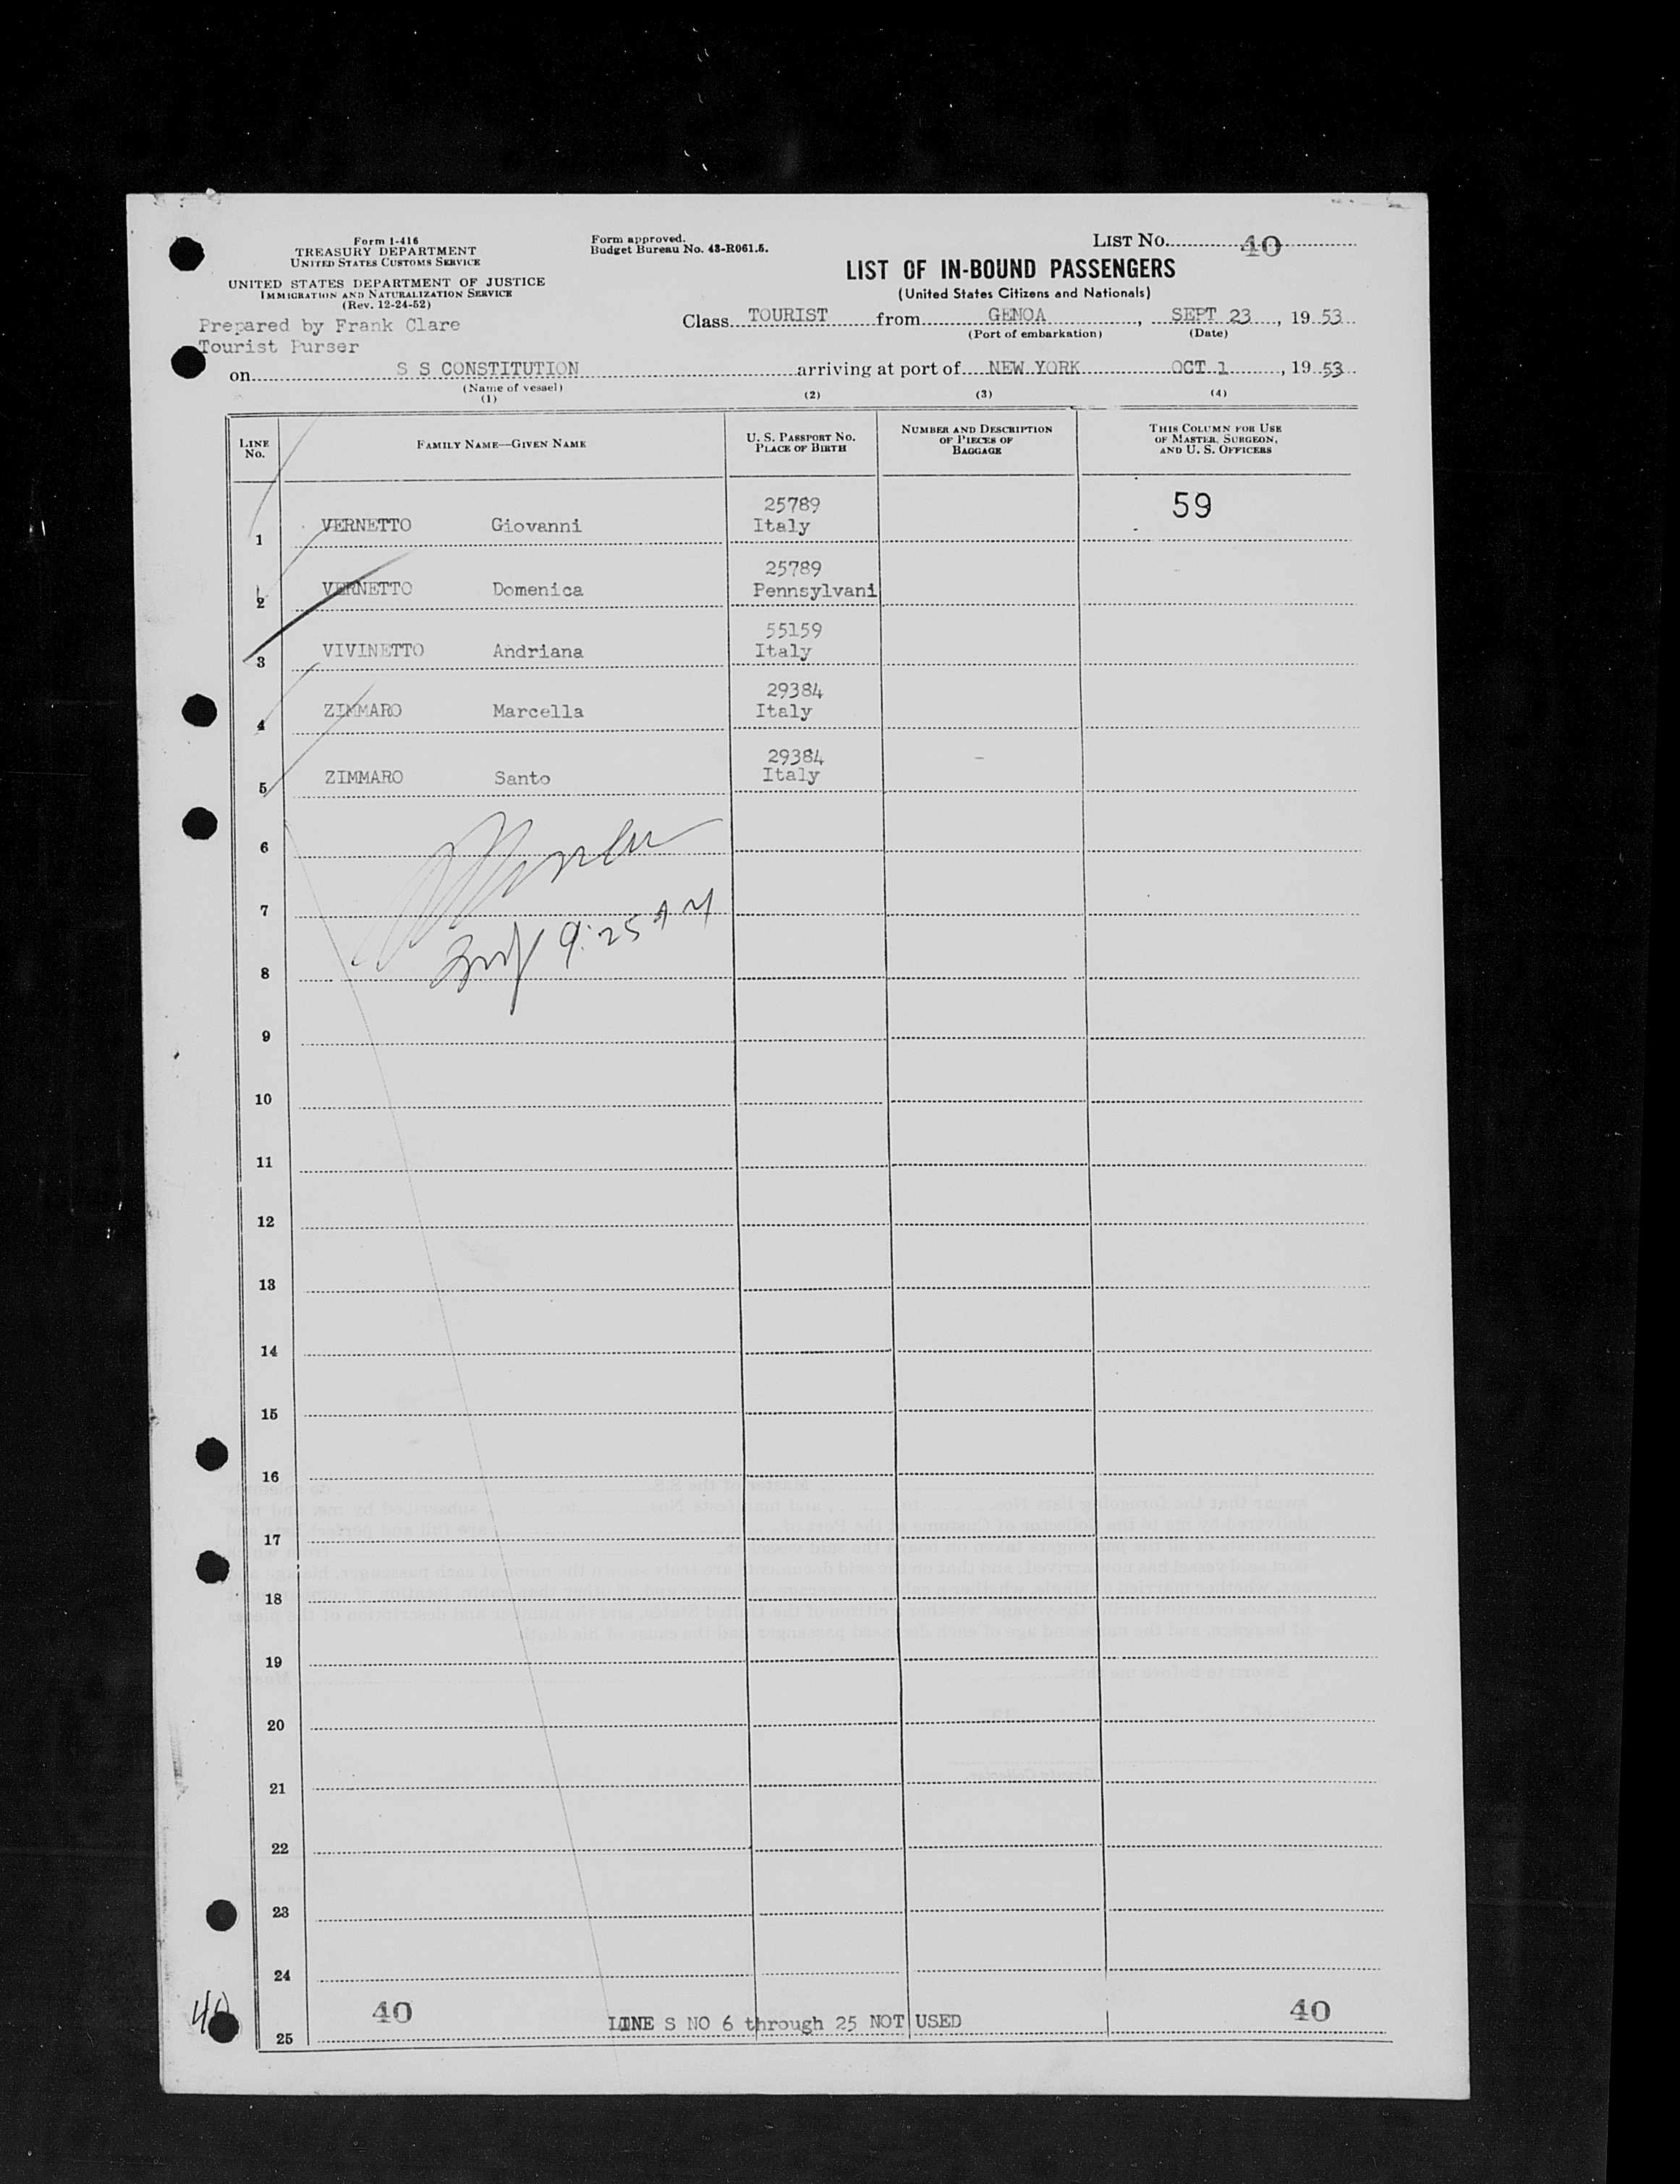 Form I-416
TREASURY DEPARTMENT
UNITED STATES CUSTOMS SERVICE
UNITED STATES DEPARTMENT OF JUSTICE
IMMIGRATION AND NATURALIZATION SERVICE
(Rev. 12-24-52)
Prepared by Frank Clare
Tourist Purser
Form approved.
Budget Bureau No. 43-R061.5.
LIST No. 40
LIST OF IN-BOUND PASSENGERS
(United States Citizens and Nationals)
Class TOURIST from GENOA, SEPT 23, 19 53
(Port of embarkation) (Date)
on S S CONSTITUTION arriving at port of NEW YORK OCT 1, 19 53
(Name of vessel)
(1) (2) (3) (4)
LINE No. FAMILY NAME—GIVEN NAME U. S. PASSPORT No. PLACE OF BIRTH NUMBER AND DESCRIPTION OF PIECES OF BAGGAGE THIS COLUMN FOR USE OF MASTER, SURGEON, AND U. S. OFFICERS
25789 59
1 VERNETTO Giovanni Italy
25789
2 VERNETTO Domenica Pennsylvani
55159
3 VIVINETTO Andriana Italy
29384
4 ZIMMARO Marcella Italy
29384
5 ZIMMARO Santo Italy
6
7
9:25 AM
8
9
10
11
12
13
14
15
16
17
18
19
20
21
22
23
24
40 40 40
25 LINE S NO 6 through 25 NOT USED